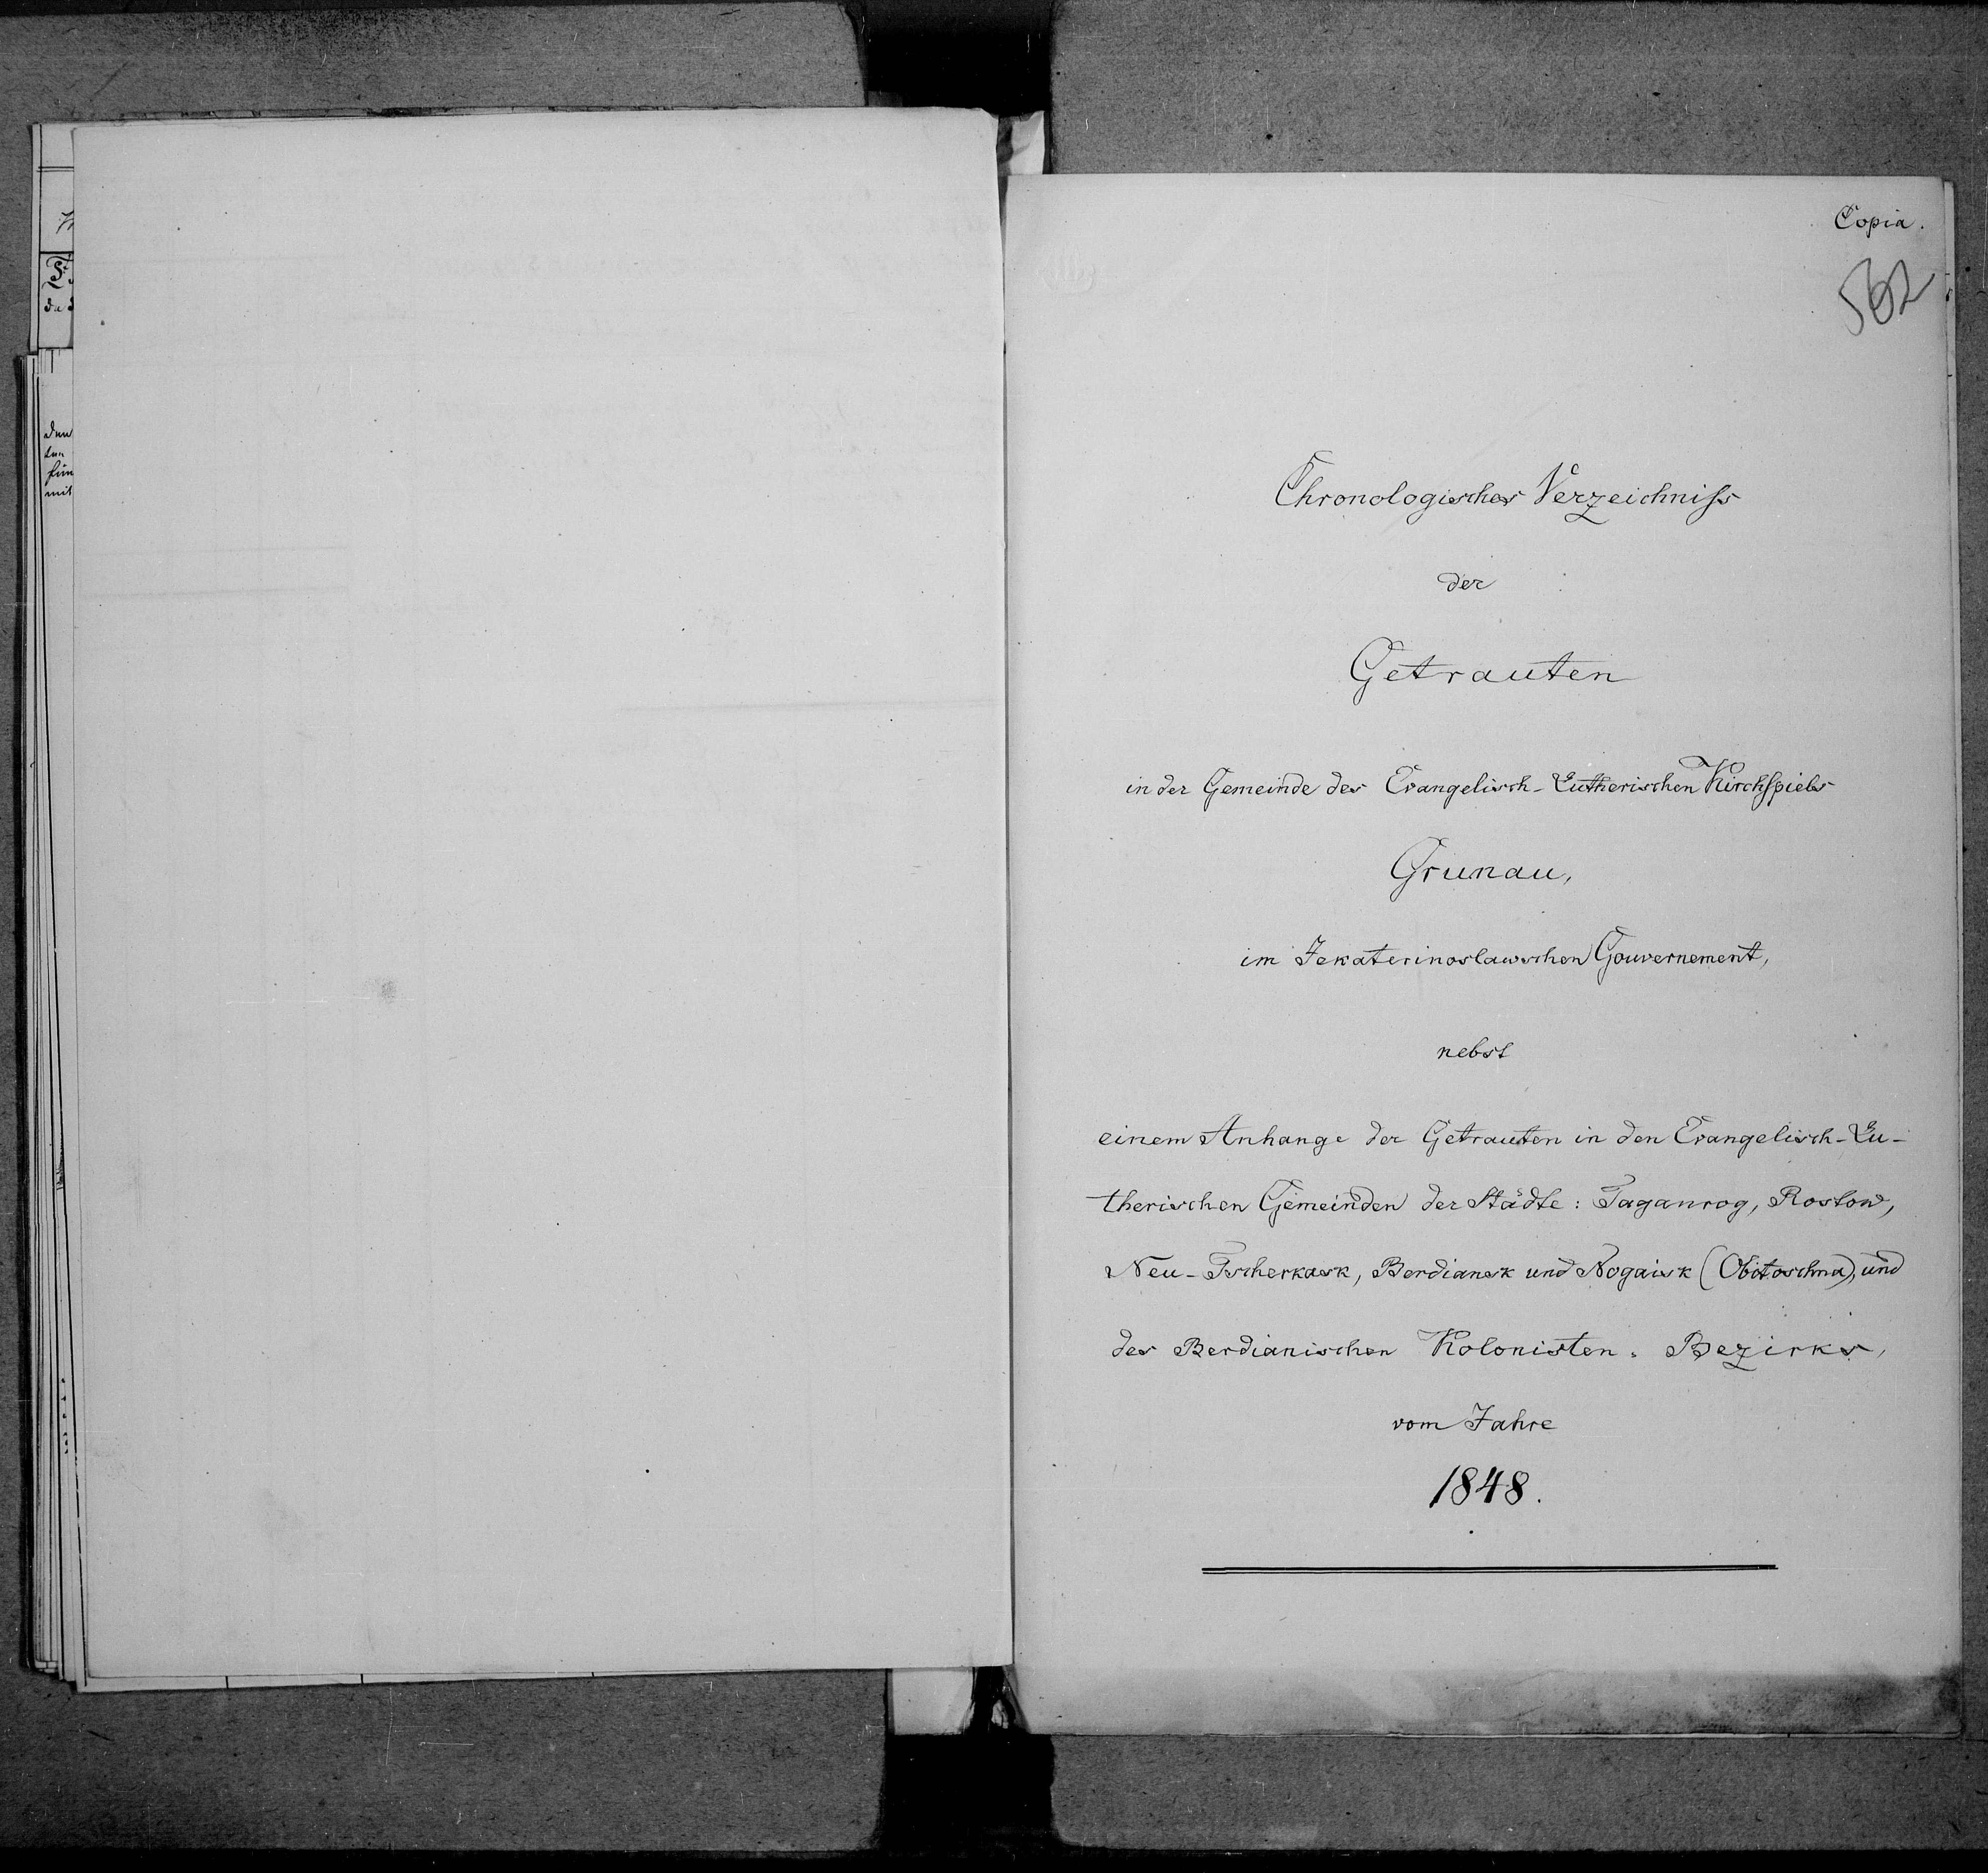 Copia.
562
Chronologisches Verzeichniss
der
Getrauten
in der Gemeinde des Evangelisch-Lutherischen Kirchspiels
Grunau,
im Jekaterinoslawschen Gouvernement,
nebst
einem Anhange der Getrauten in den Evangelisch-Lu-
therischen Gemeinden der Städte: Taganrog, Rostow,
Neu-Tscherkask, Berdiansk und Nogaisk (Obitoschna), und
des Berdianischen Kolonisten-Bezirks,
vom Jahre
1848.